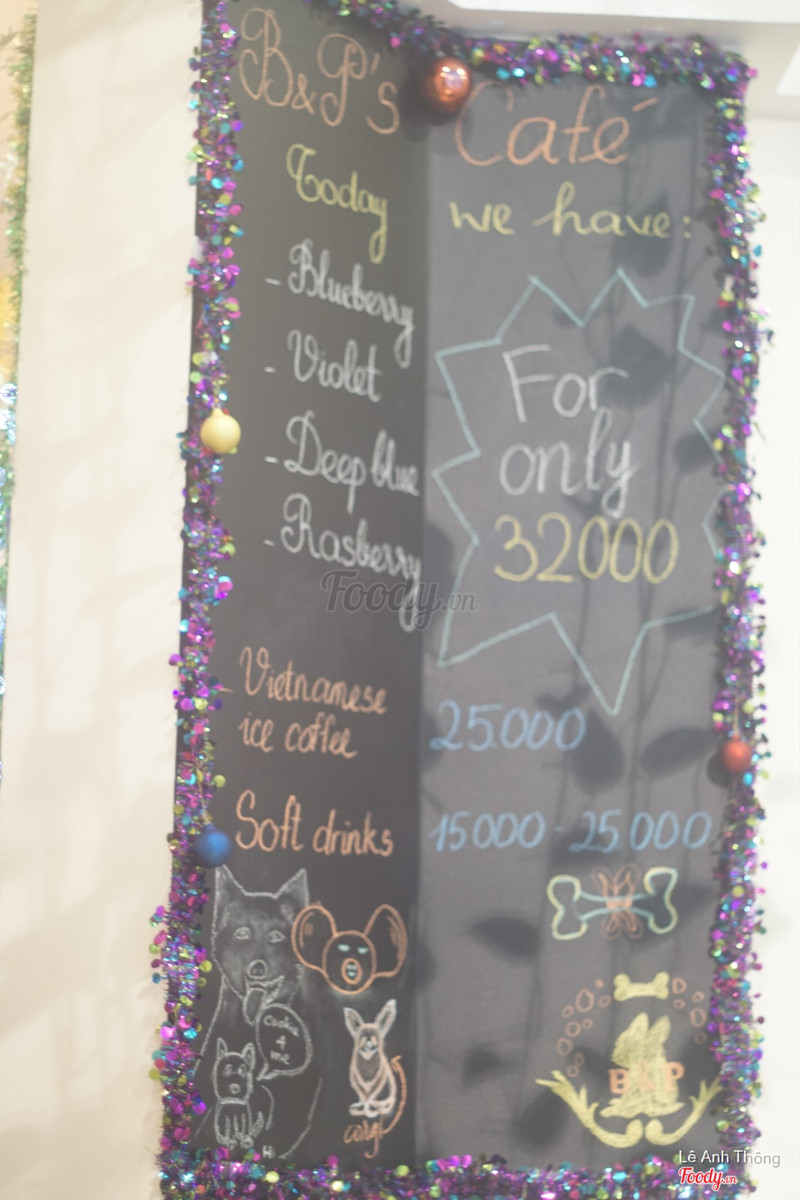 B&P's Café
Today we have:
- Blueberry
- Violet
- Deep blue
- Rasberry
For
only
32000
Foody.vn
- Vietnamese
ice coffee
25.000
Soft drinks 15000 - 25.000
4
me
corgi
B&P
Lê Anh Thông
Foody.vn